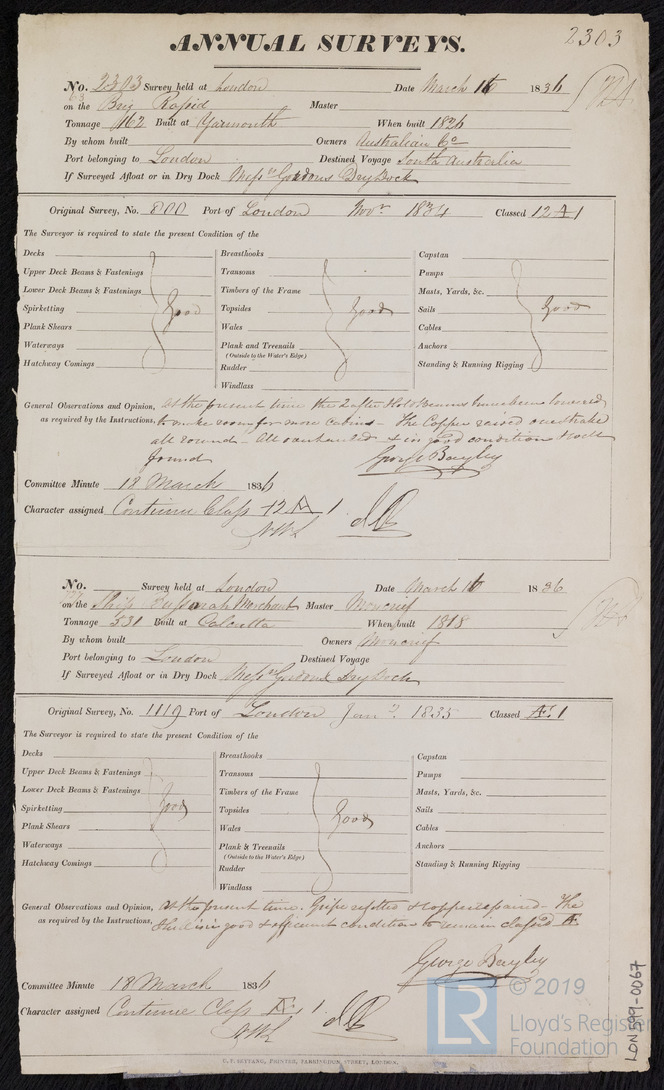 ANNUAL SURVEYS.
2303
No. 2303 Survey held at London Date March 16 1836
on the Brig Rapid Master
Tonnage 162 Built at Yarmouth When built 1826
By whom built Owners Australian Co
Port belonging to London Destined Voyage South Australia
If Surveyed Afloat or in Dry Dock Messrs Gordons Dry Dock
Original Survey, No. 800 Port of London Novr 1834 Classed 12 A 1
The Surveyor is required to state the present Condition of the
Decks Breasthooks Capstan
Upper Deck Beams & Fastenings Transoms Pumps
Lower Deck Beams & Fastenings Timbers of the Frame Masts, Yards, &c.
Spirketting good Topsides good Sails good
Plank Shears Wales Cables
Waterways Plank and Treenails Anchors
(Outside to the Water's Edge)
Hatchway Comings Rudder Standing & Running Rigging
Windlass
General Observations and Opinion, At the present time the 2 after Hold Beams have been lowered
as required by the Instructions, to make room for more cabins - The Copper raised one strake
all round - All overhauled & in good condition
found
George Bayley
Committee Minute 18 March 1836
Character assigned Continue Class 12 A 1
No. Survey held at London Date March 16 1836
on the Ship Merchant Master Moncrief
Tonnage 531 Built at Calcutta When built 1818
By whom built Owners Moncrief
Port belonging to London Destined Voyage
If Surveyed Afloat or in Dry Dock Messrs Gordons Dry Dock
Original Survey, No. 1119 Port of London Jany 1835 Classed Æ 1
The Surveyor is required to state the present Condition of the
Decks Breasthooks Capstan
Upper Deck Beams & Fastenings Transoms Pumps
Lower Deck Beams & Fastenings Timbers of the Frame Masts, Yards, &c.
Spirketting good Topsides good Sails
Plank Shears Wales Cables
Waterways Plank & Treenails Anchors
(Outside to the Water's Edge)
Hatchway Comings Rudder Standing & Running Rigging
Windlass
General Observations and Opinion, At the present time. Gripe refitted & copper repaired - The
as required by the Instructions, Ship is in good & efficient condition to remain classed Æ
George Bayley
Committee Minute 18 March 1836
Character assigned Continue Class Æ 1
C. F. SEYFANG, PRINTER, FARRINGDON STREET, LONDON.
LR © 2019
Lloyd's Register
Foundation
LON 599-0067